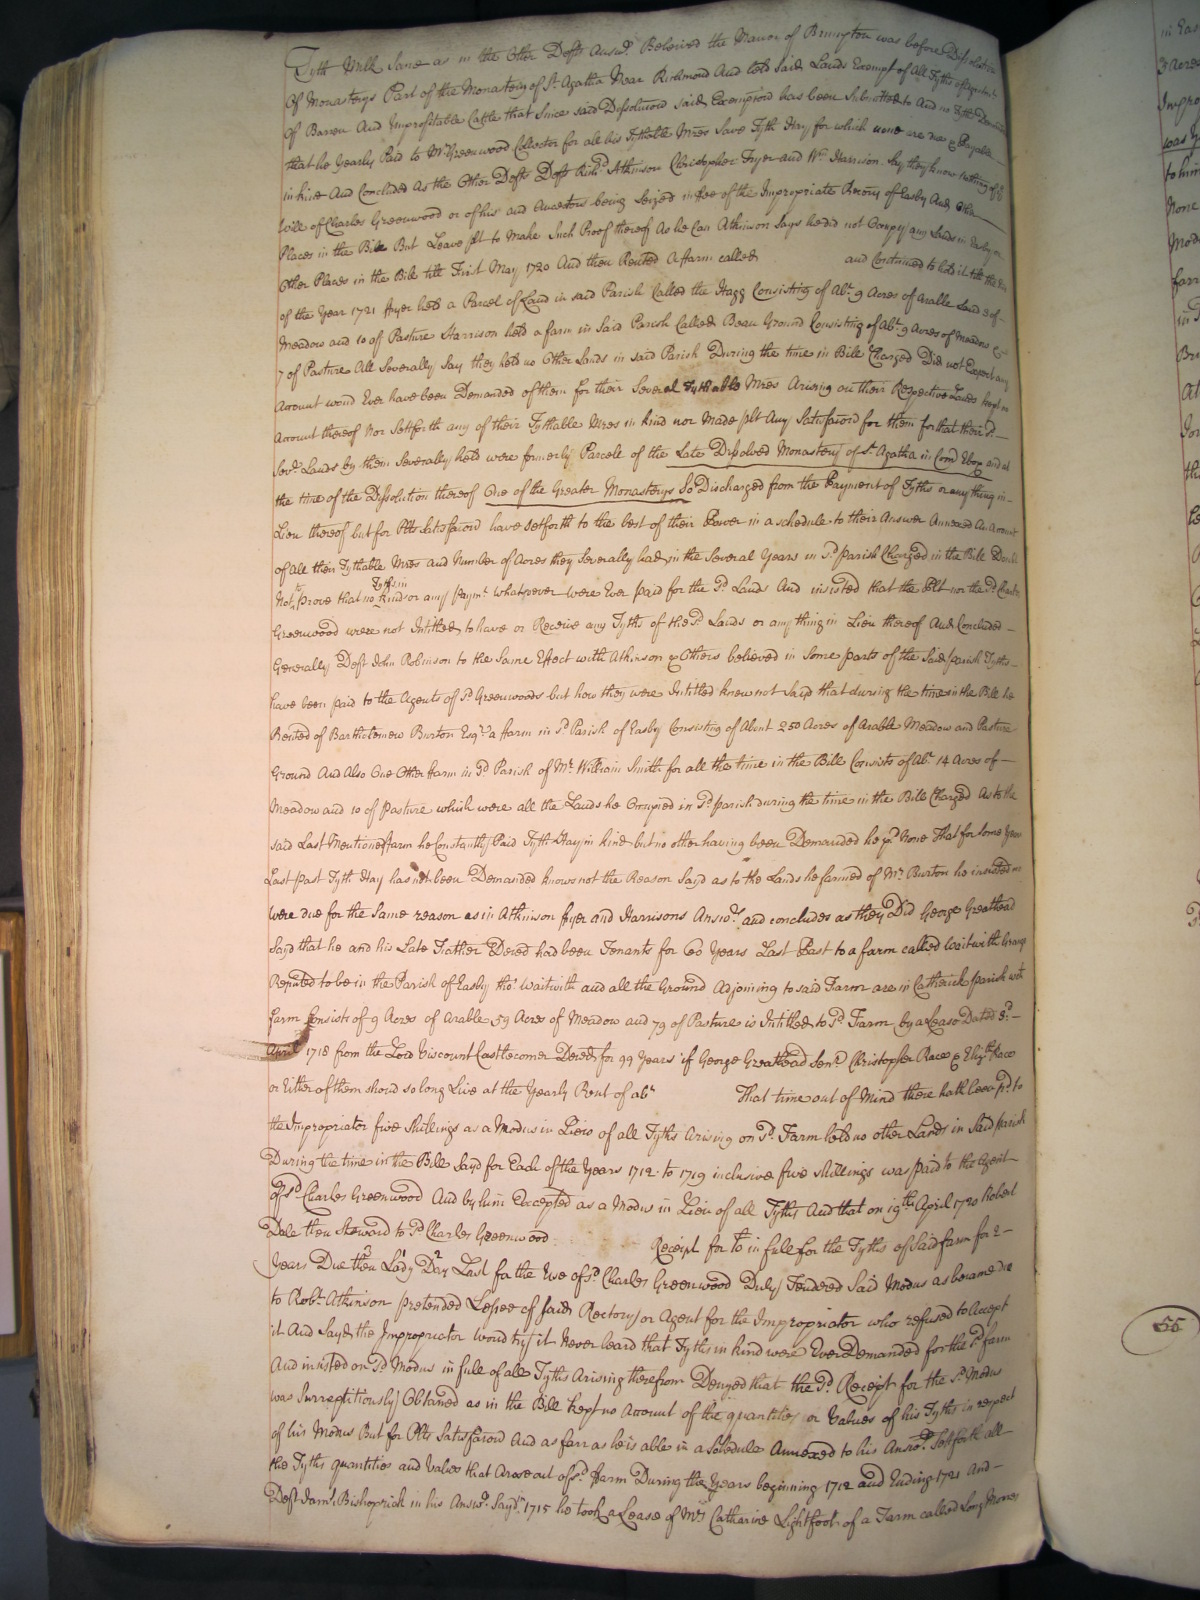 Tyth Milk Same as in the Other Defts Answr. Believed the Manor of Brompton was before Dissolution
Of Monasterys Part of the Monastery of St. Agatha Near Richmond And held said Lands Exempt of All Tyths
of Barren And Unprofitable Cattle that Since said Dissolucion said Exempcion has been Submitted to And no Tyth Demanded
that he Yearly Paid to Mr. Greenwood Collector for all his Tythable Mres Save Tyth Hay for which none are now Payable
in kind And Concluded As the Other Defts Deft Richd. Atkinson Christopher Fryer and Wm. Harrison Say they know nothing of ye
Will of Charles Greenwood or of his and Ancestors being Seized in ffee of the Impropriate Rectory of Easby And Other
Places in the Bill But Leave plt to Make Such Proof thereof As he Can Atkinson Says he did not Occupy any Lands in Easby or
Other Places in the Bill till First May 1720 And then Rented A ffarm called and Continued to hold it till the
of the Year 1721 ffryer held a Parcel of Land in said Parish Called the Hagg Consisting of Abt. 9 Acres of Arable Land 3 of
Meadow and 10 of Pasture Harrison held a farm in Said Parish Called Beau Ground Consisting of Abt. 9 Acres of Meadow &
7 of Pasture All Severally Say they held no Other Lands in said Parish During the time in Bill Charged Did not Expect any
Account woud Ever have been Demanded of them for their Several Tythable Mres Arising on their Respective Lands kept no
Account thereof Nor Settforth any of their Tythable Mres in kind nor Made plt Any Satisfaccion for them for that their sd.
Sevl. Lands by them Severally held were formerly Parcell of the Late Dissolved Monastery of St. Agatha in Com Ebor and at
the time of the Dissolution thereof One of the Greater Monasterys So Discharged from the Payment of Tyths or any thing in
Lieu thereof but for Plts Satisfaccion have Setforth to the best of their Power in a schedule to their Answer Annexed An Account
of All their Tythable Mres and Number of Acres they Severally had in the Several Years in Sd. parish Charged in the Bill
Not to prove that no Tyths in kind or any paymt. whatsoever were Ever paid for the Sd. Lands And insisted that the Plt nor the Sd. Charles
Greenwood were not Intitled to have or Receive any Tyths of the Sd. Lands or any thing in Lieu thereof And Concluded
Generally Deft John Robinson to the Same Effect with Atkinson & Others believed in Some parts of the Said parish Tyths
have been paid to the Agents of Sd. Greenwoods but how they were Intitled knew not Said that during the time in the Bill he
Rented of Bartholomew Burton Esqr. a ffarm in Sd. Parish of Easby Consisting of About 250 Acres of Arable Meadow and Pasture
Ground And Also One Other ffarm in Sd. Parish of Mr. William Smith for all the time in the Bill Consists of Abt. 14 Acres of
Meadow and 10 of Pasture which were all the Lands he Occupied in Sd. parish during the time in the Bill Charged As to the
said Last Mentioned ffarm he Constantly Paid Tyth Hay in kind but no other having been Demanded he pd. None That for some Years
Last past Tyth Hay has not been Demanded knows not the Reason Says as to the Lands he farmed of Mr. Burton he insisted no
were due for the Same reason as in Atkinson ffryer and Harrisons Answr. and concludes as they Did George Greathead
Says that he and his Late Father Deced had been Tenants for 60 Years Last Past to a farm called Waitwith Grange
Reputed to be in the Parish of Easby tho' Waitwith and all the Ground Adjoining to said Farm are in Catterick parish wch
farm Consists of 9 Acres of Arable 59 Acres of Meadow and 79 of Pasture is Intitled to Sd. Farm by a Lease Dated 8d.
April 1718 from the Lord Viscount Castlecomer Deced for 99 Years if George Greathead Senr. Christopher Raco & Elizth. Raco
or Either of them shoud so long Live at the Yearly Rent of abt That time out of Mind there hath been pd. to
the Impropriator five Shillings as a Modus in Lieu of all Tyths Arising on Sd. Farm held no other Lands in Said parish
During the time in the Bill Says for Each of the Years 1712 to 1719 inclusive five shillings was paid to the Agent
of sd. Charles Greenwood And by him Accepted as a Modus in Lieu of all Tyths And that on 19th April 1720 Robert
Dale then Steward to Sd. Charles Greenwood Receipt for in full for the Tyths of Said farm for 2
Years Due then Lady Day Last for the Use of sd. Charles Greenwood Duly Tendered Said Modus as became due
to Robt. Atkinson pretended Lessee of said Rectory or Agent for the Impropriator who refused to Accept
it And Says the Impropriator woud try it Never heard that Tyths in kind were Ever Demanded for the Sd. farm
And insisted on Sd. Modus in full of all Tyths Arising therefrom Denyed that the Sd. Receipt for the Sd. Modus
was Surreptitiously Obtained as in the Bill kept no Account of the quantities or Values of his Tyths in respect
of his Modus But for Plts Satisfaccion And as farr as he is able in a Schedule Annexed to his Answr. Settforth all
the Tyths quantities and Values that Arose out of sd. ffarm During the Years beginning 1712 and Ending 1721 And
Deft Jams. Bishoprick in his Answr. Says in 1715 he took a Lease of Mrs Catharine Lightfoot of a Farm called Long
55